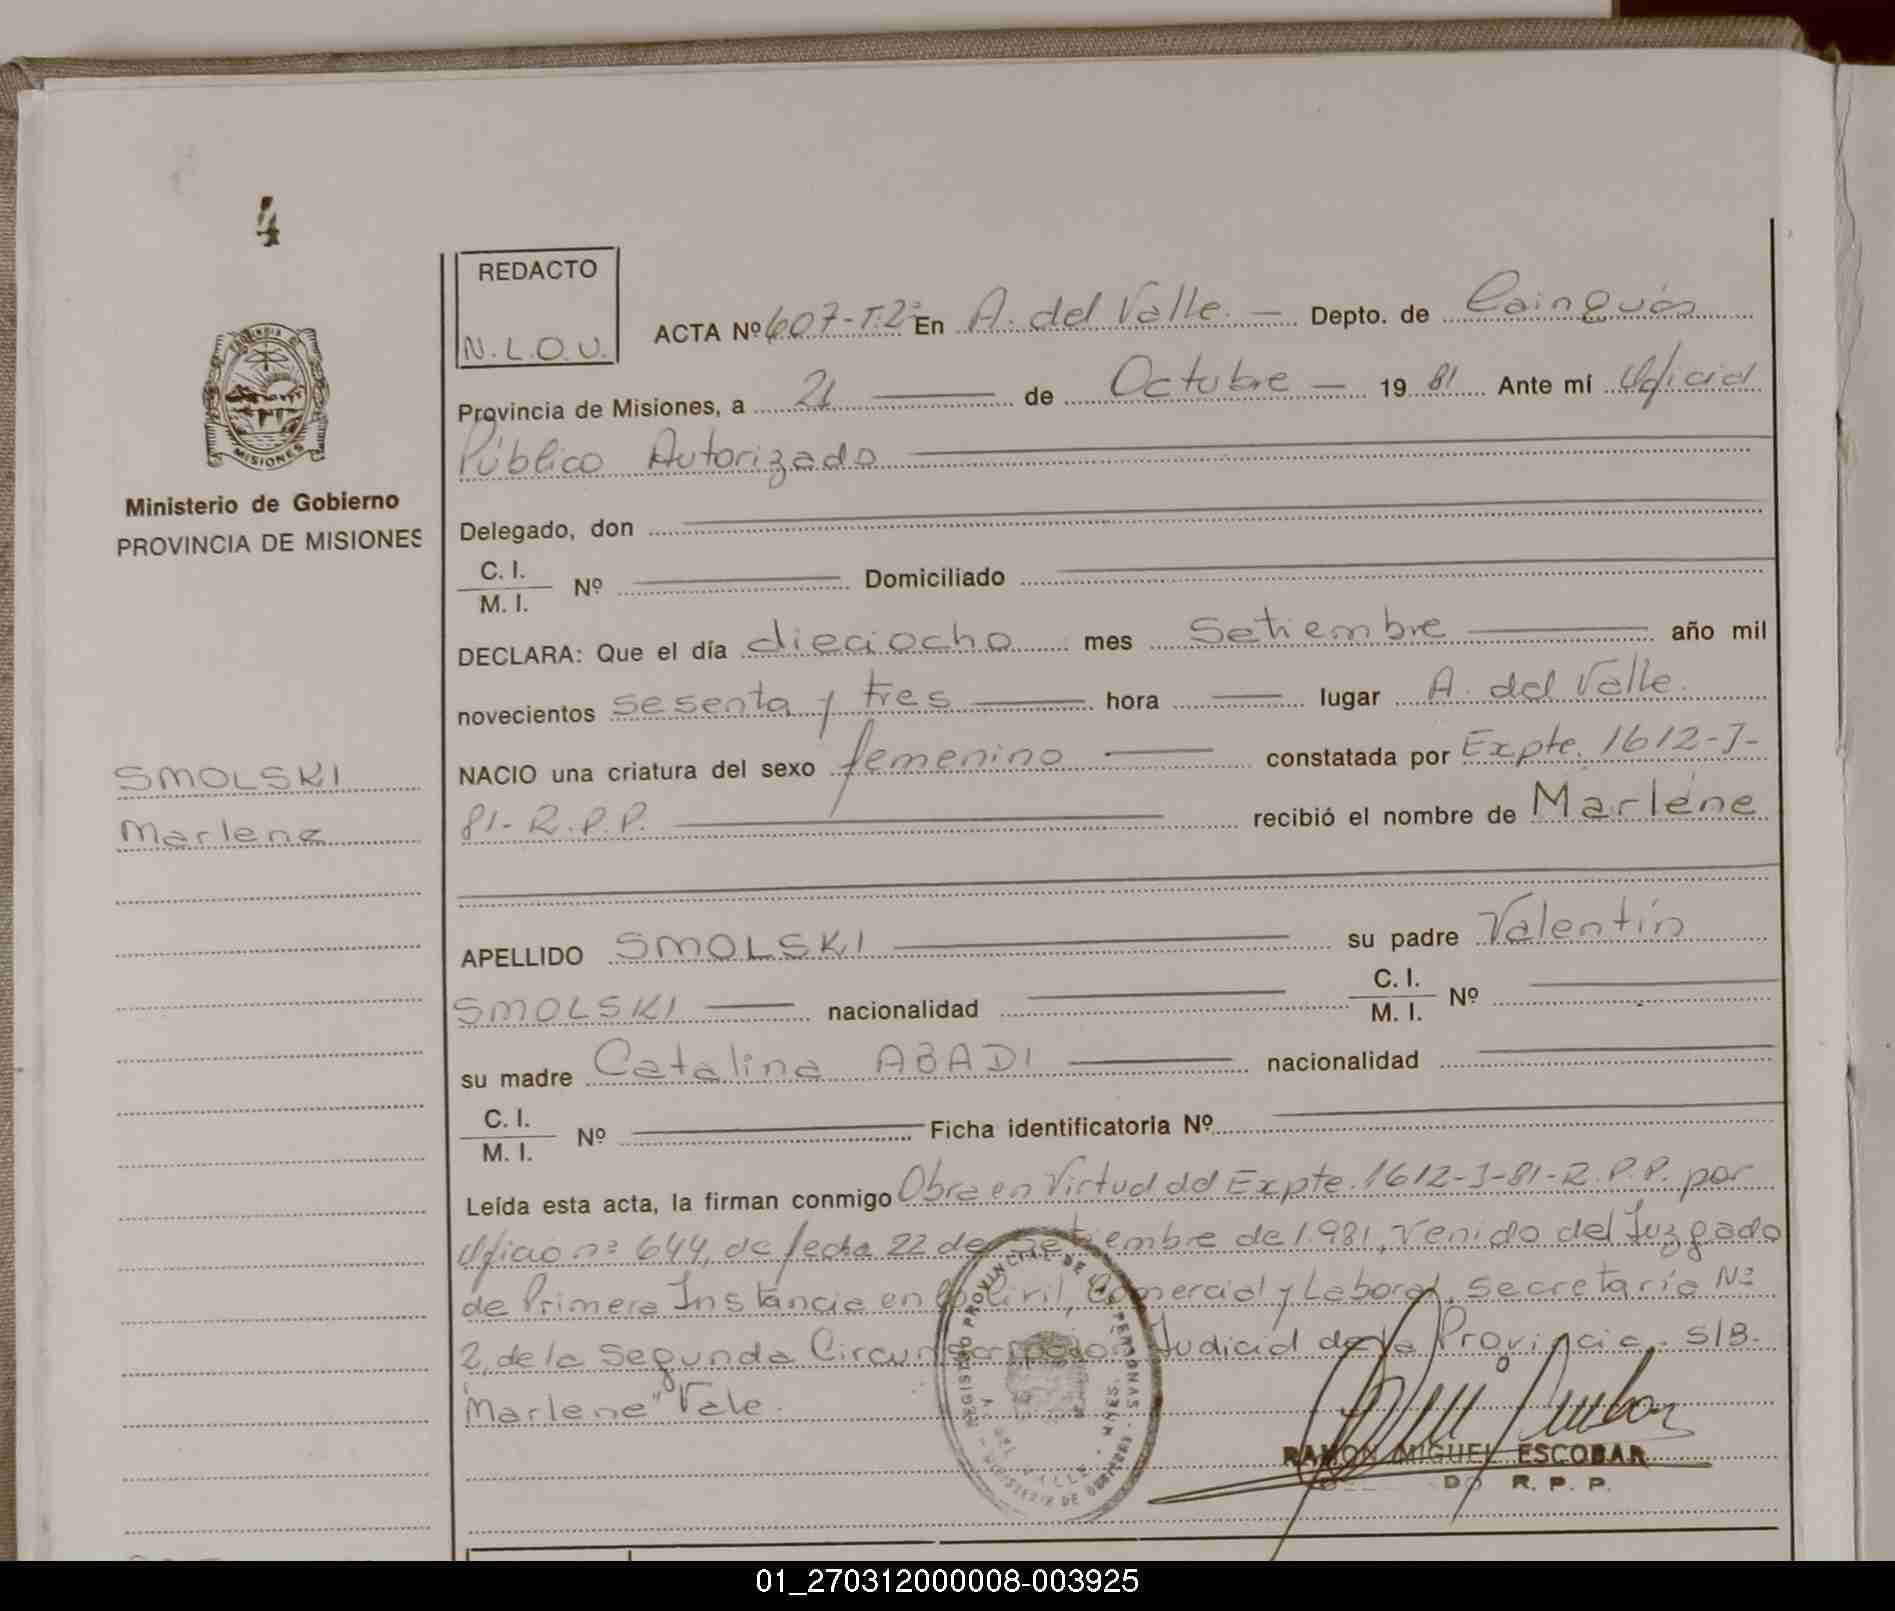 4
REDACTO
N.L.O.U.
ACTA Nº 607-T.2º En A. del Valle. — Depto. de Cainguás
Provincia de Misiones, a 21 — de Octubre — 19 81 Ante mí Oficial
Público Autorizado
MISIONES
Ministerio de Gobierno
PROVINCIA DE MISIONES
Delegado, don
C. I.
M. I. Nº Domiciliado
DECLARA: Que el día dieciocho mes Setiembre año mil
novecientos sesenta y tres hora lugar A. del Valle.
NACIO una criatura del sexo femenino constatada por Expte. 1612-J-
81-R.P.P. recibió el nombre de Marlene
SMOLSKI
Marlene
APELLIDO SMOLSKI su padre Valentín
SMOLSKI nacionalidad C. I.
M. I. Nº
su madre Catalina ABADI nacionalidad
C. I.
M. I. Nº Ficha identificatoria Nº
Leída esta acta, la firman conmigo Obra en Virtud del Expte. 1612-J-81-R.P.P. por
Oficio nº 644, de fecha 22 de Setiembre de 1.981, venido del Juzgado
de Primera Instancia en lo Civil, Comercial y Laboral, Secretaría Nº
2, de la Segunda Circunscripción Judicial de la Provincia. S/B.
"Marlene" Vale.
REGISTRO PROVINCIAL DE LAS PERSONAS
A. DEL VALLE - MNES.
MINISTERIO DE GOBIERNO
RAMON MIGUEL ESCOBAR
R. P. P.
01_270312000008-003925